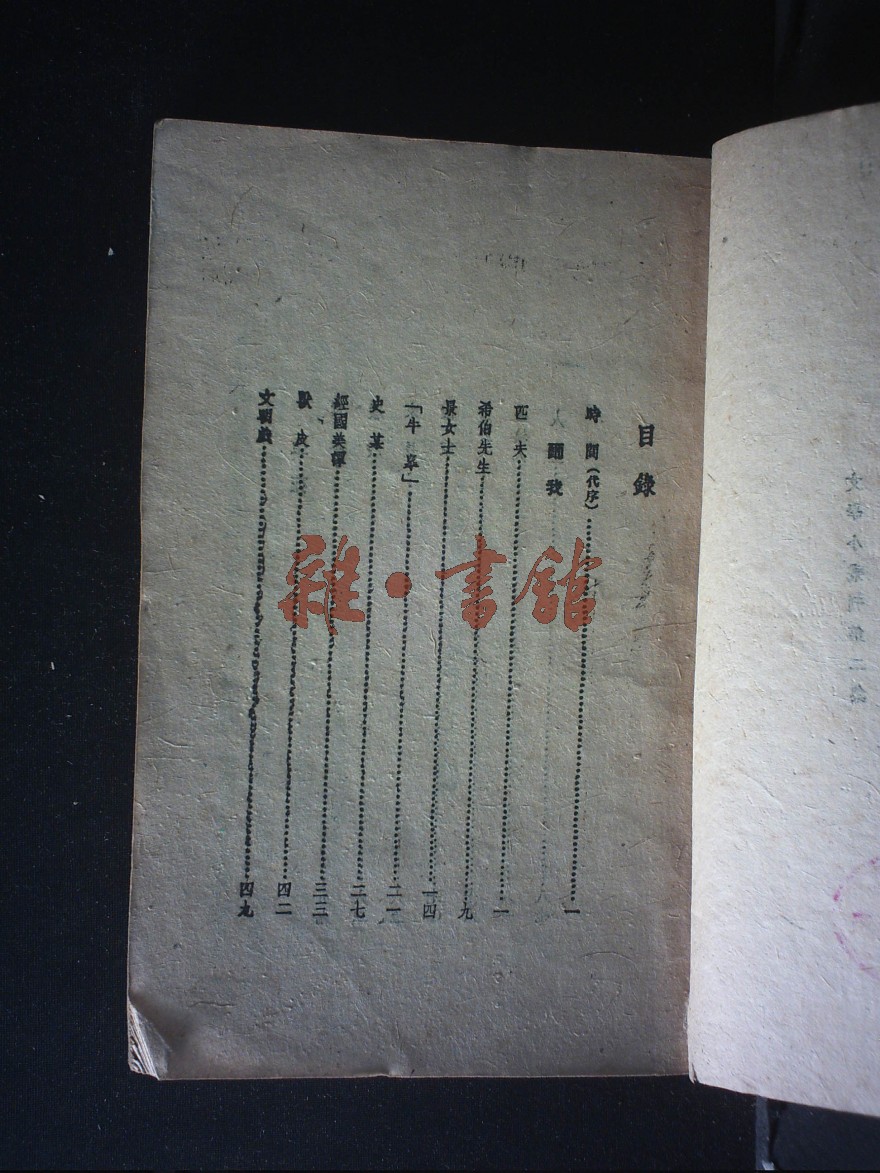 文學小叢刊第二
目錄
時間(代序)……一
我
匹夫……一
希伯先生……九
景女士……一四
「牛……二一
史華……二七
經國美談……三三
獸皮……四二
文明戲……四九
雜·書館